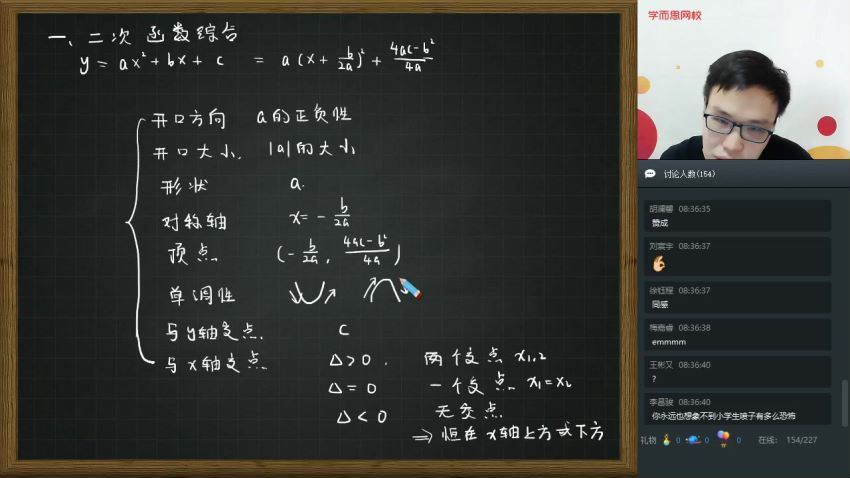 一、二次函数综合
y = ax² + bx + c = a(x + b/2a)² + (4ac-b²)/4a
开口方向 a的正负性
开口大小. |a|的大小
形状 a.
对称轴 x = - b/2a
顶点 (- b/2a , (4ac-b²)/4a)
单调性
与y轴交点. c
与x轴交点 Δ>0 . 两个交点 x₁,₂
Δ=0 一个交点 x₁=x₂
Δ<0 无交点
⇒ 恒在x轴上方或下方
学而思网校
讨论人数(154)
胡斓馨 08:36:35
赞成
刘宸宇 08:36:37
徐钰程 08:36:37
同感
梅嘉睿 08:36:38
emmmm
王彬又 08:36:40
?
李昌骏 08:36:40
你永远也想象不到小学生喷子有多么恐怖
礼物 0 0 0 在线: 154/227